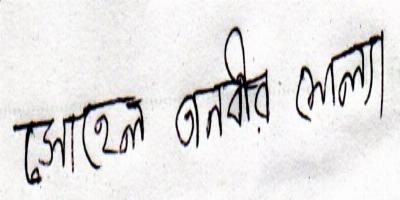 সোহেল তানবীর মোল্যা